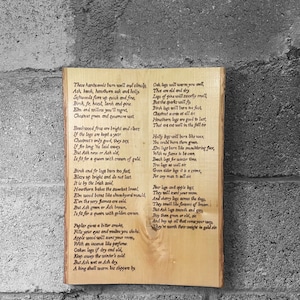 These hardwoods burn well and slowly,
Ash, beech, hawthorn oak and holly.
Softwoods flare up quick and fine,
Birch, fir, hazel, larch and pine.
Elm and willow you'll regret,
Chestnut green and sycamore wet.
Beechwood fires are bright and clear
If the logs are kept a year
Chestnut's only good, they say,
If for long 'tis laid away
But Ash new or Ash old,
Is fit for a queen with crown of gold.
Birch and fir logs burn too fast,
Blaze up bright and do not last
It is by the Irish said,
Hawthorn bakes the sweetest bread.
Elm wood burns like churchyard mould,
E'en the very flames are cold.
But Ash green or Ash brown,
Is fit for a queen with golden crown.
Poplar gives a bitter smoke,
Fills your eyes and makes you choke
Apple wood will scent your room,
With an incense like perfume
Oaken logs if dry and old,
Keep away the winter's cold
But Ash wet or Ash dry,
A king shall warm his slippers by.
Oak logs will warm you well,
That are old and dry
Logs of pine will sweetly smell,
But the sparks will fly.
Birch logs will burn too fast,
Chestnut scarce at all sir
Hawthorn logs are good to last,
That are cut well in the fall sir
Holly logs will burn like wax,
You could burn them green.
Elm logs burn like smouldering flax,
With no flame to be seen.
Beech logs for winter time,
Yew logs as well sir
Green elder logs it is a crime,
For any man to sell sir.
Pear logs and apple logs,
They will scent your room
And cherry logs across the dogs,
They smell like flowers of broom
But Ash logs smooth and grey,
Buy them green or old, sir
And buy up all that come your way,
They're worth their weight in gold sir.